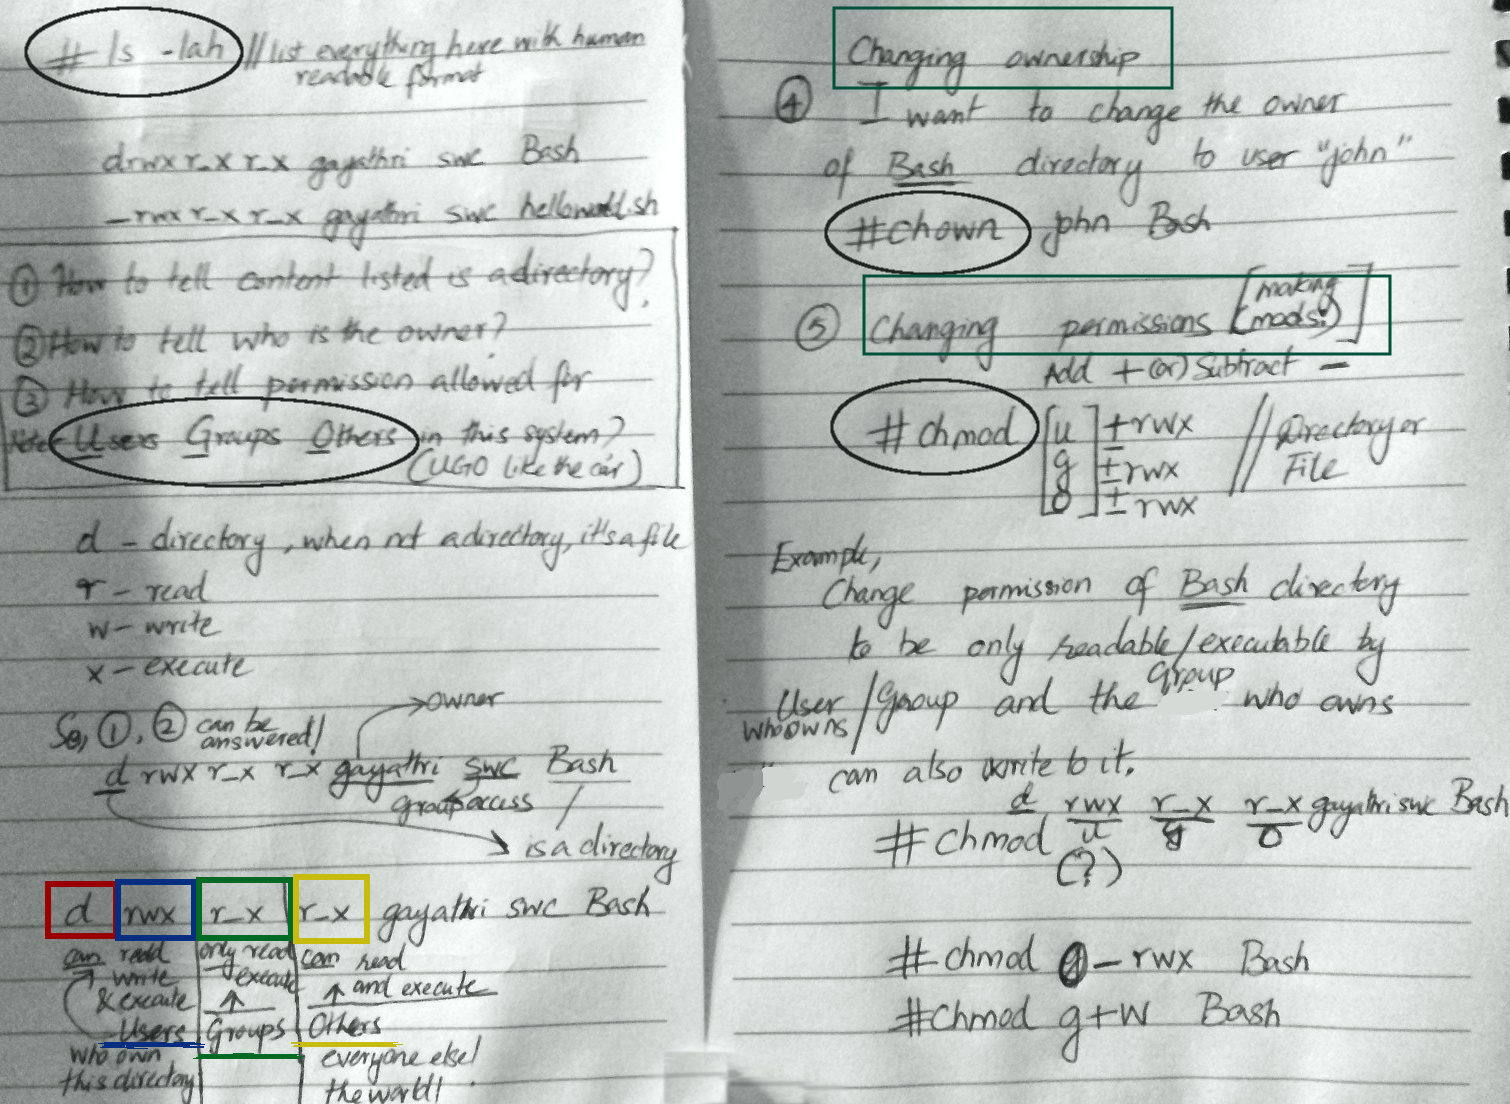 # ls -lah //list everything here with human
readable format
drwxr_xr_x gayathri swc Bash
_rwxr_xr_x gayathri swc helloworld.sh
① How to tell content listed is a directory?
② How to tell who is the owner?
③ How to tell permission allowed for
Users Groups Others in this system?
(UGO like the car)
d - directory, when not a directory, it's a file
r - read
w - write
x - execute
So, ①, ② can be
answered!
owner
d rwx r_x r_x gayathri swc Bash
group access
is a directory
d rwx r_x r_x gayathri swc Bash
can read
write
& execute
Users
who own
this directory
only read
execute
Groups
can read
and execute
Others
everyone else!
the world!
Changing ownership
④ I want to change the owner
of Bash directory to user "john"
#chown john Bash
⑤ Changing permissions [making
(mods!)]
Add + (or) Subtract -
#chmod [u] ±rwx // Directory or
[g] ±rwx File
[o] ±rwx
Example,
Change permission of Bash directory
to be only readable/executable by
User /Group and the Group who owns
who owns
can also write to it.
d rwx r_x r_x gayathri swc Bash
#chmod u g o
(?)
#chmod o-rwx Bash
#chmod g+w Bash